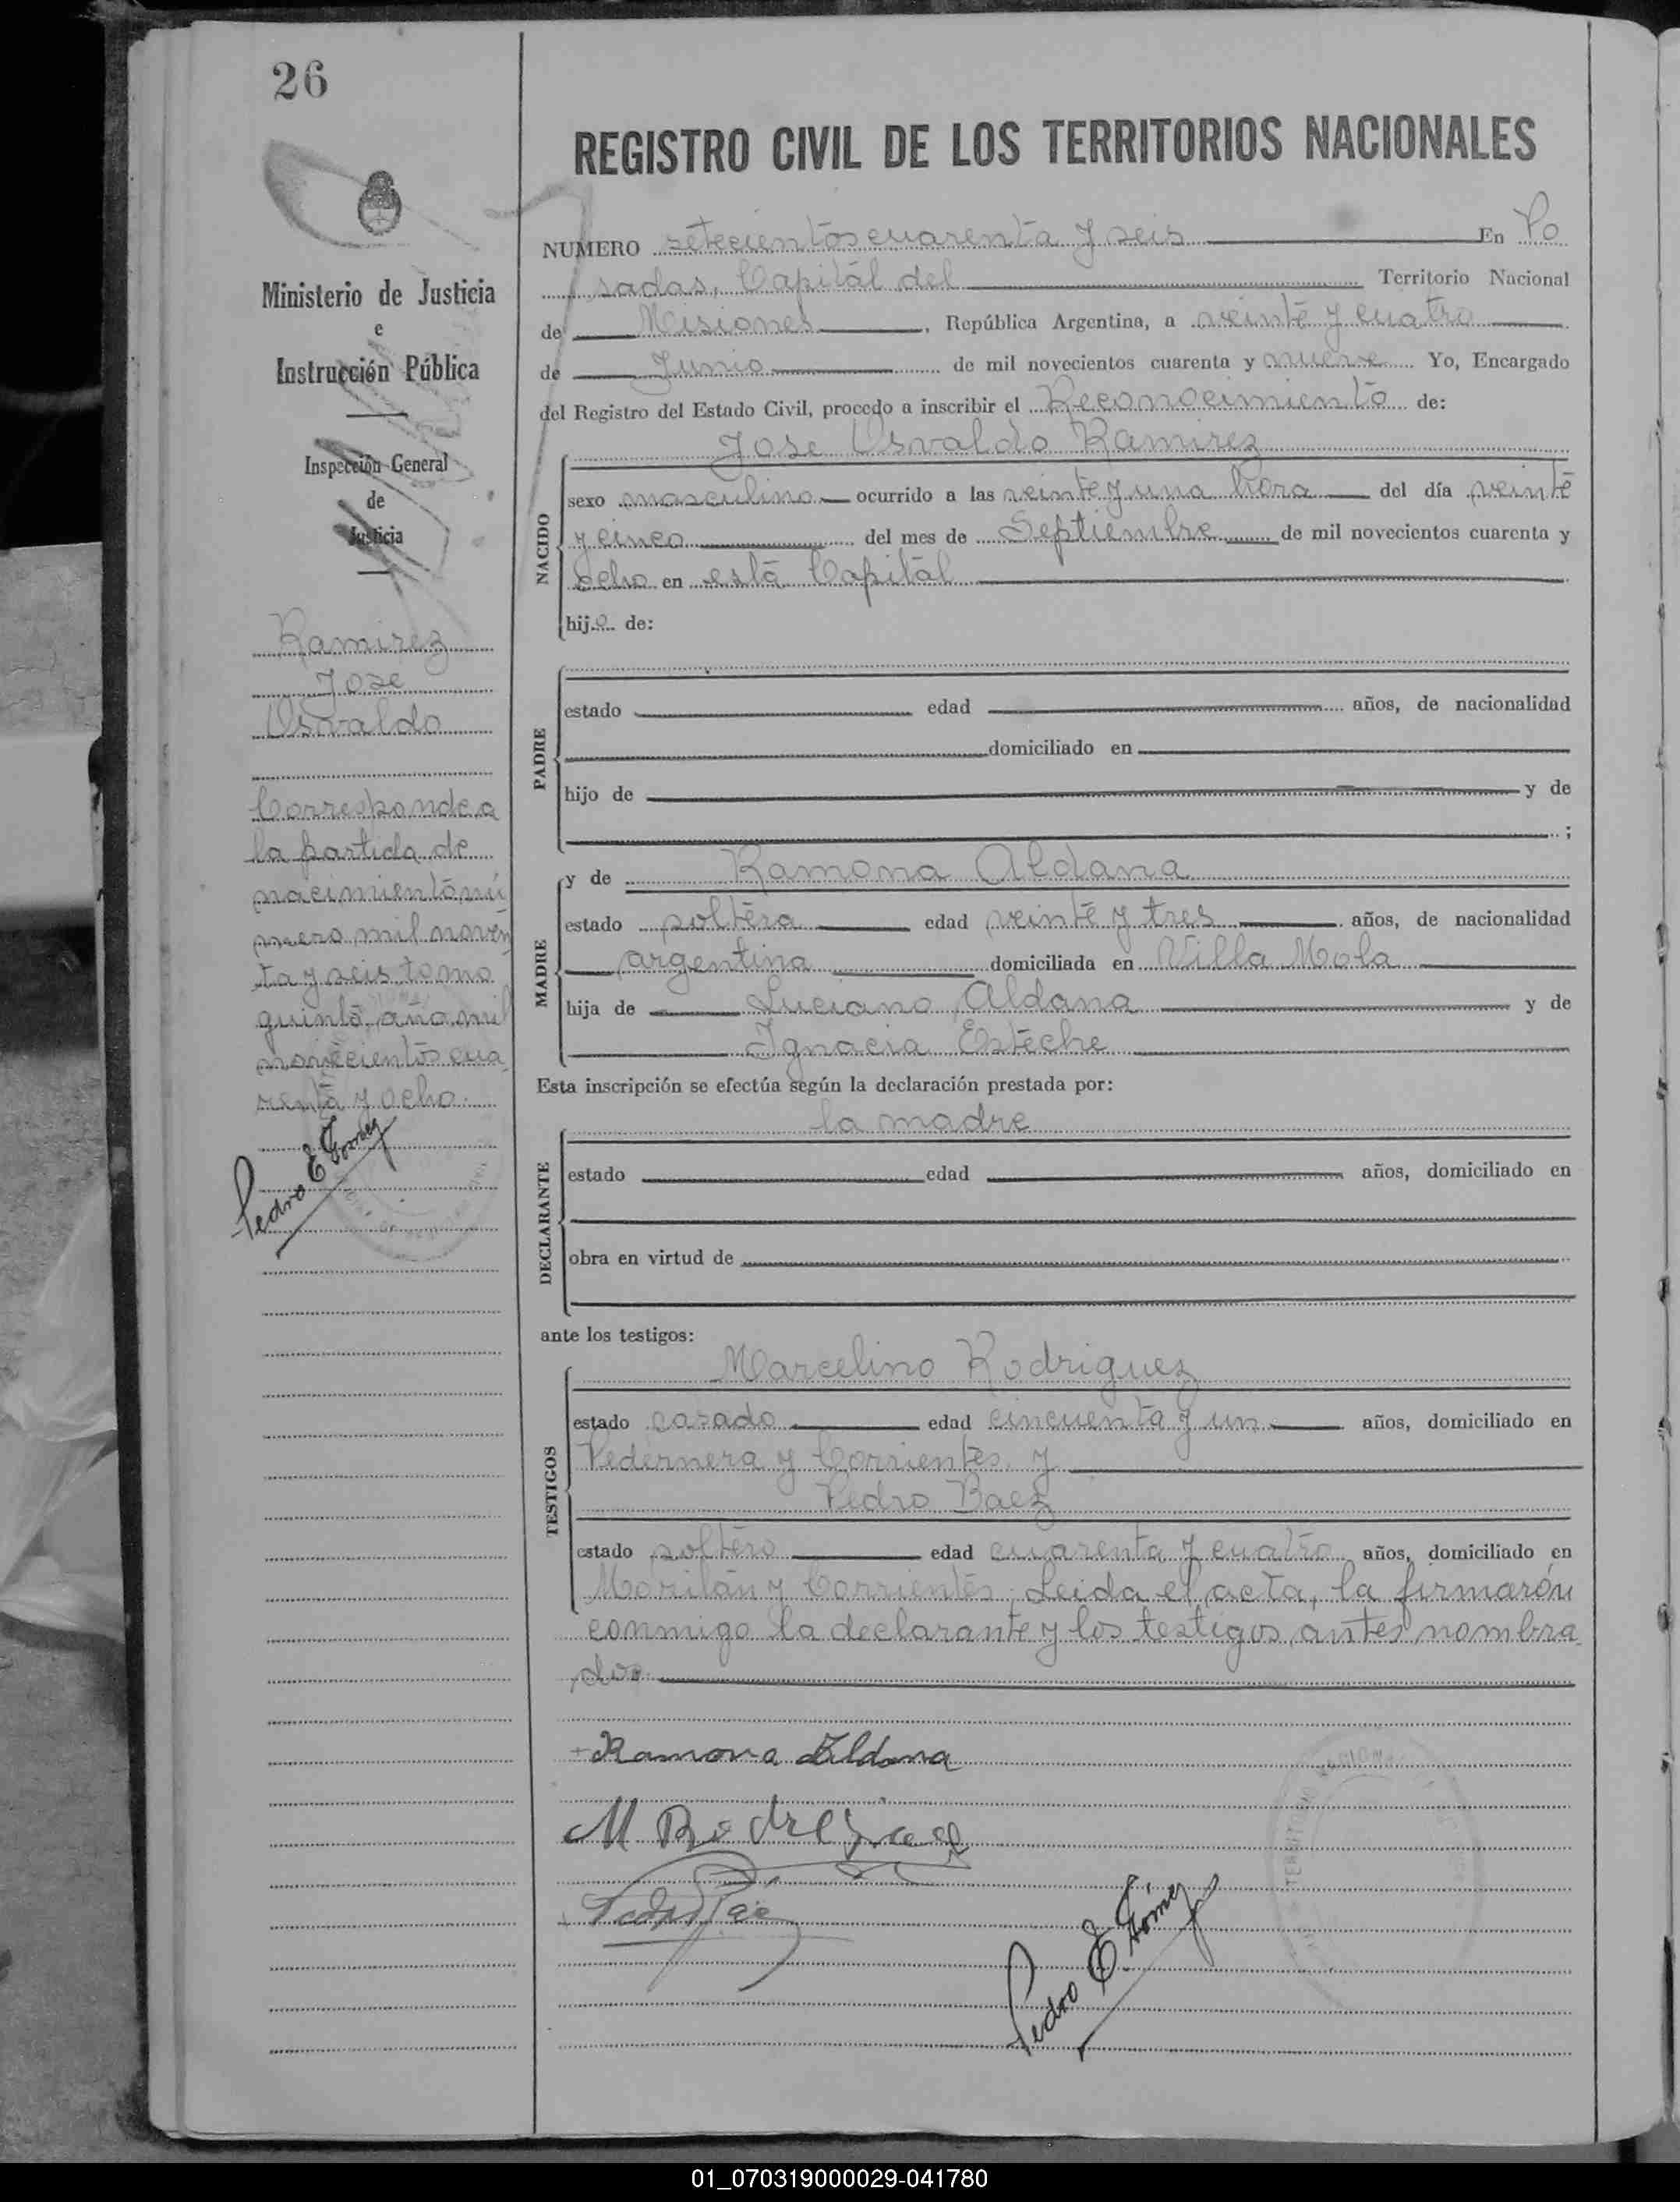 26
REGISTRO CIVIL DE LOS TERRITORIOS NACIONALES
Ministerio de Justicia
e
Instrucción Pública
Inspección General
de
Justicia
Ramirez
Jose
Osvaldo
Corresponde a
la partida de
nacimiento nú
mero mil noven
ta y seis tomo
quinto, año mil
novecientos cua
renta y ocho.
Pedro E Gomez
NUMERO setecientos cuarenta y seis En Po
sadas, Capitál del Territorio Nacional
de Misiones, República Argentina, a veinte y cuatro
de Junio de mil novecientos cuarenta y nueve Yo, Encargado
del Registro del Estado Civil, procedo a inscribir el Reconocimiento de:
Jose Osvaldo Ramirez
NACIDO
sexo masculino ocurrido a las veinte y una hora del día veinte
y cinco del mes de Septiembre de mil novecientos cuarenta y
ocho en está Capitál
hijo de:
PADRE
estado edad años, de nacionalidad
domiciliado en
hijo de y de
;
MADRE
y de Ramona Aldana
estado soltera edad veinte y tres años, de nacionalidad
argentina domiciliada en Villa Mola
hija de Luciano Aldana y de
Ignacia Esteche
Esta inscripción se efectúa según la declaración prestada por:
la madre
DECLARANTE
estado edad años, domiciliado en
obra en virtud de
ante los testigos:
TESTIGOS
Marcelino Rodriguez
estado casado edad cincuenta y un años, domiciliado en
Pedernera y Corrientes. y
Pedro Baez
estado soltero edad cuarenta y cuatro años, domiciliado en
y Corrientes; Leida el acta, la firmarón
conmigo la declarante y los testigos antes nombra
dos.
Ramona Aldana
M Rodriguez
Pedro Baez
Pedro E. Gómez
01_070319000029-041780